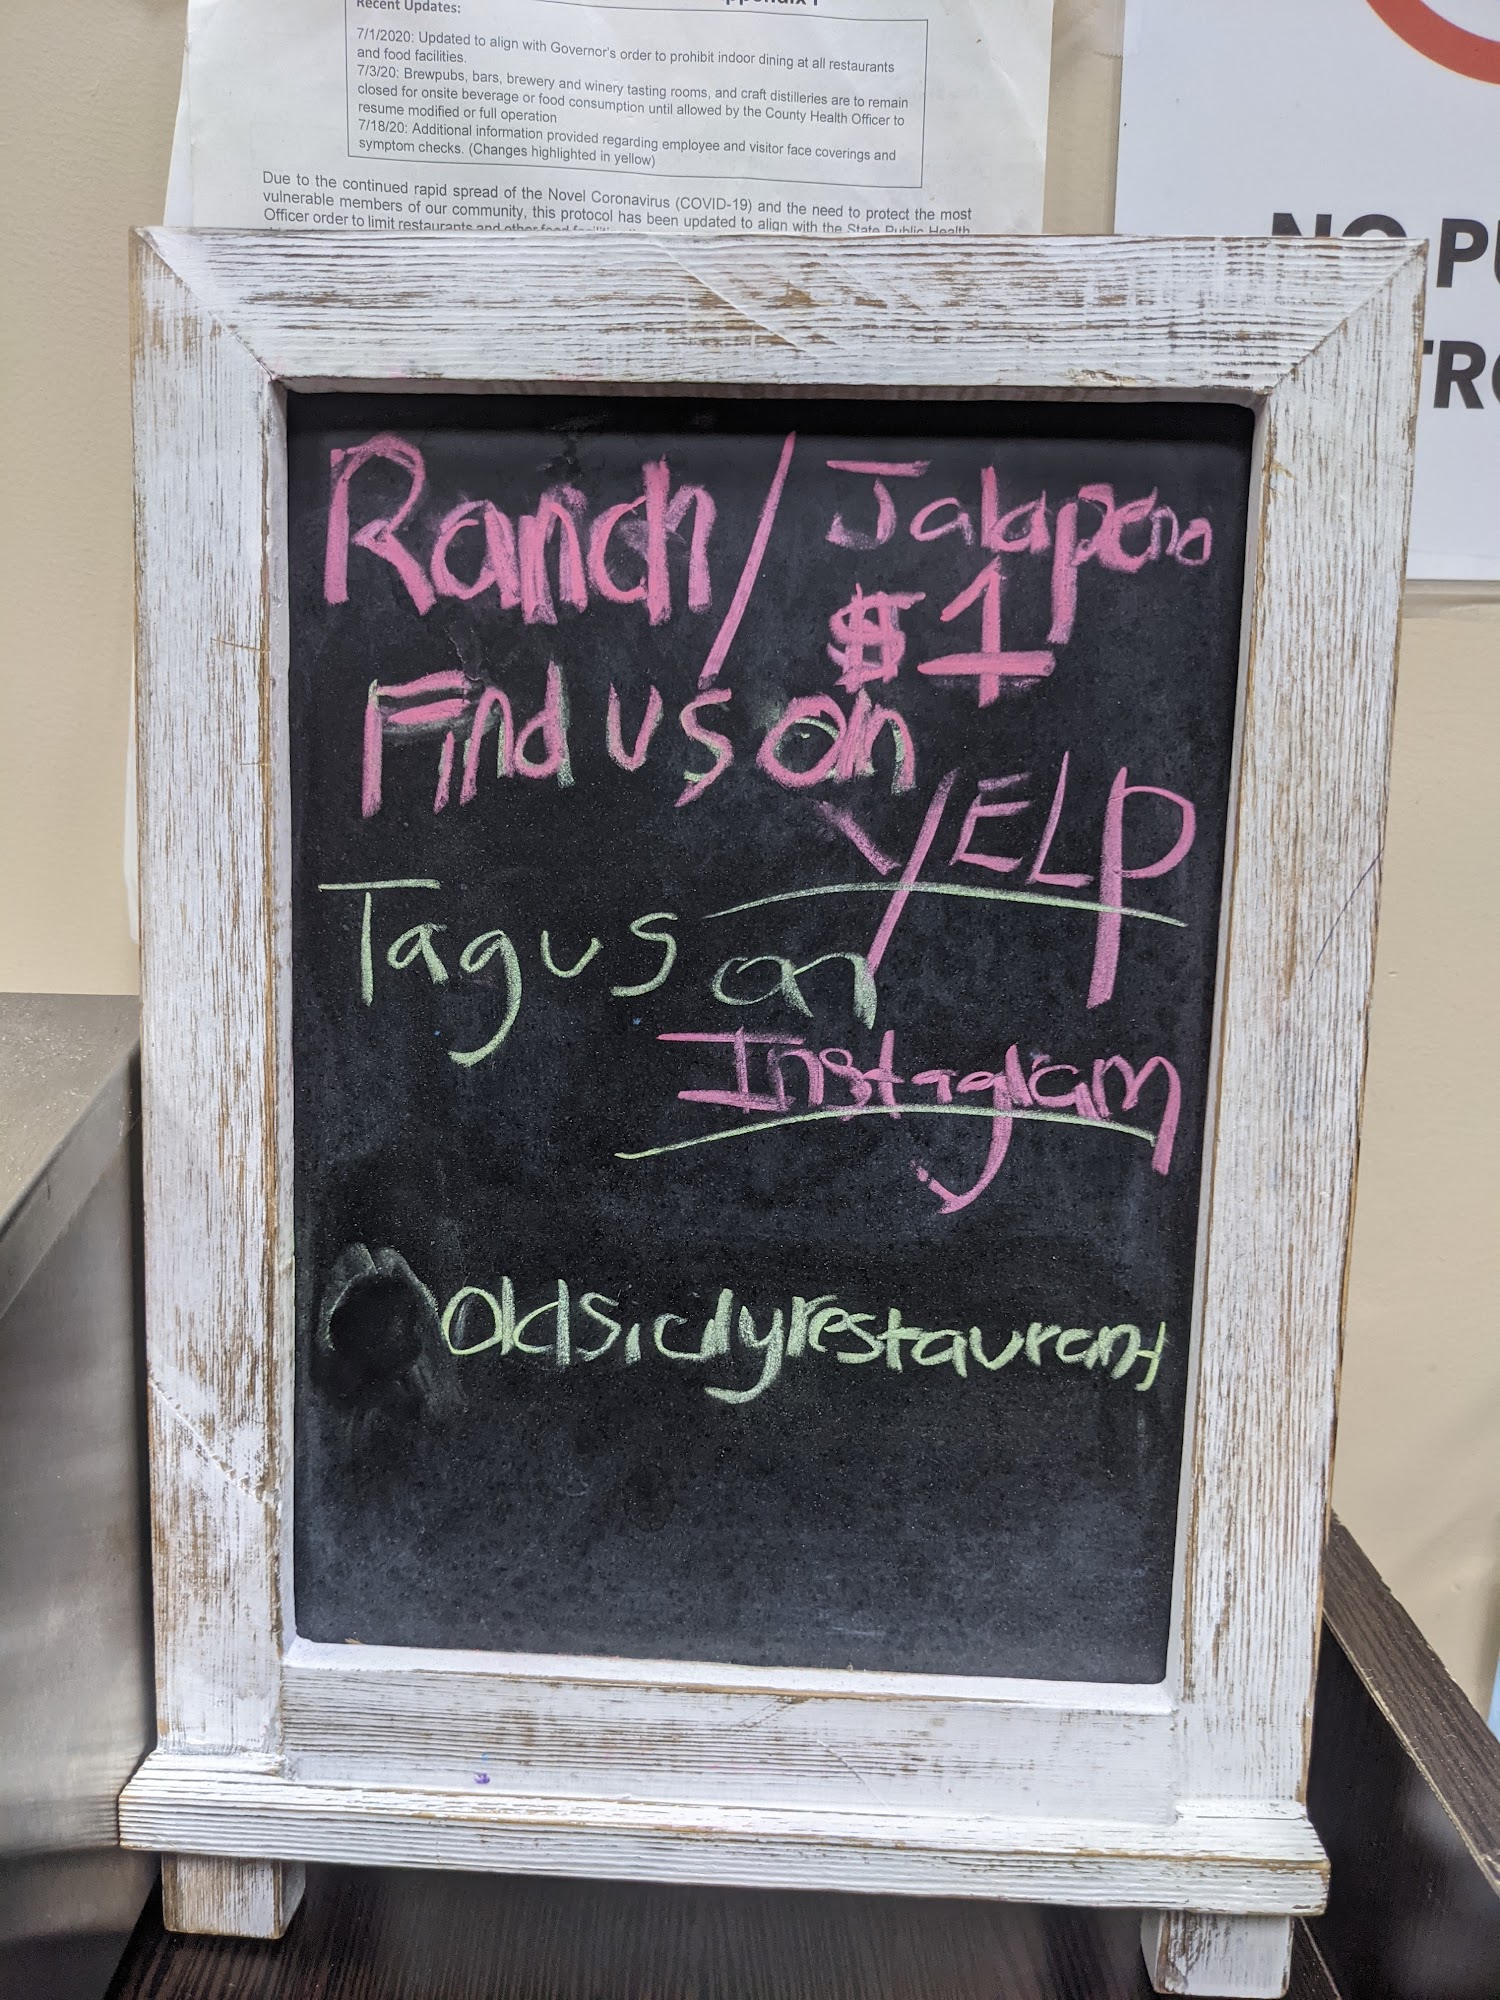 Recent Updates:
7/1/2020: Updated to align with Governor's order to prohibit indoor dining at all restaurants
and food facilities.
7/3/20: Brewpubs, bars, brewery and winery tasting rooms, and craft distilleries are to remain
closed for onsite beverage or food consumption until allowed by the County Health Officer to
resume modified or full operation
7/18/20: Additional information provided regarding employee and visitor face coverings and
symptom checks. (Changes highlighted in yellow)
Due to the continued rapid spread of the Novel Coronavirus (COVID-19) and the need to protect the most
vulnerable members of our community, this protocol has been updated to align with the State Public Health
Officer order to limit restaurants and other food
NO PU
TRO
Ranch/ Jalapeno
$1
Find us on
YELP
Tag us on
Instagram
oldsicilyrestaurant